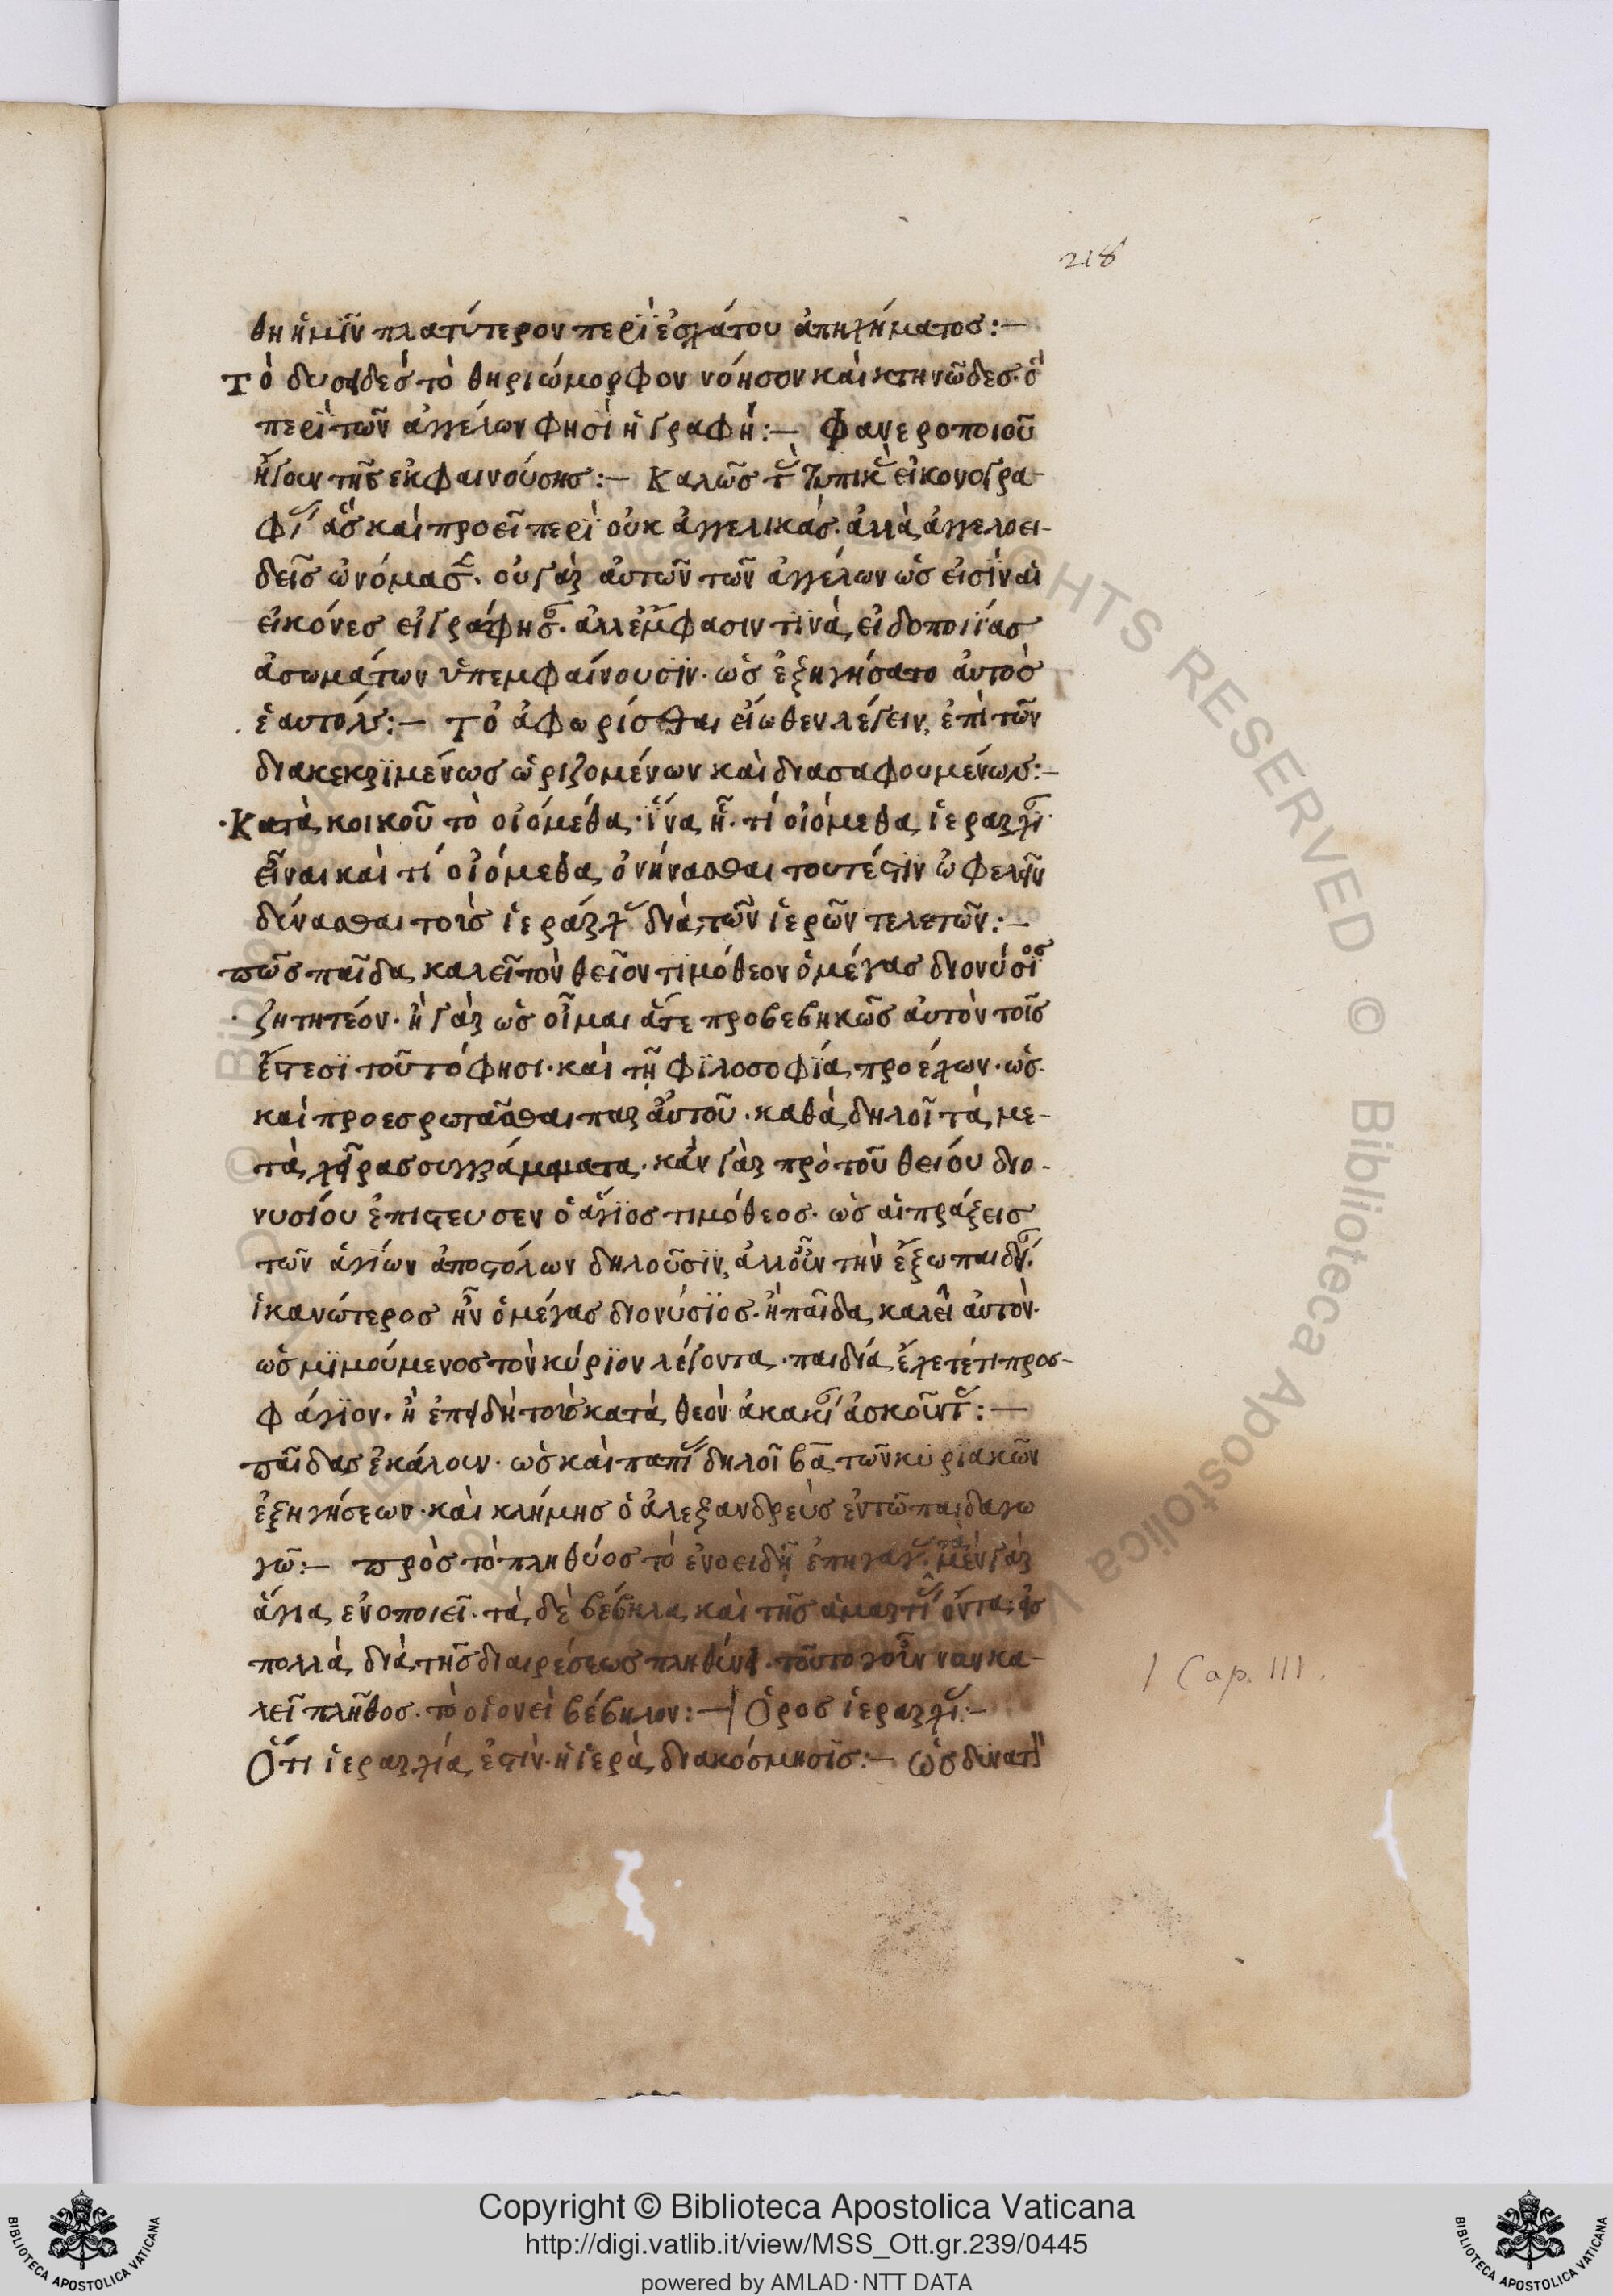 218
θη ἡμῖν πλατύτερον περὶ ἐσχάτου ἀπηχήματος:–
Τὸ δυσειδὲς τὸ θηριώμορφον νόησον καὶ κτηνῶδες· ὃ
περὶ τῶν ἀγγέλων φησὶ ἡ γραφή:– Φανεροποιοῦ
ἤγουν τῆς ἐκφαινούσης:– Καλῶς τ τυπικ εἰκονογρα-
φί ἃς καὶ προεῖπερὶ οὐκ ἀγγελικάς. ἀλλὰ ἀγγελοει-
δεῖς ὠνόμασ. οὐ γὰρ αὐτῶν τῶν ἀγγέλων ὡς εἰσὶν αἱ
εἰκόνες ἀλλ' ἔμφασιν τινὰ εἰδοποιίας
ἀσωμάτων ὑπεμφαίνουσιν· ὡς ἐξηγήσατο αὐτὸς
ἑαυτόν:– Τὸ ἀφωρίσθαι εἴωθεν λέγειν, ἐπὶ τῶν
διακεκριμένως ὡριζομένων καὶ διασαφουμένων:–
·Κατὰ κοικοῦ τὸ οἰόμεθα· ἵνα ᾖ· τί οἰόμεθα ἱεραρχί
εἶναι καὶ τί οἰόμεθα ὀνήνασθαι τουτέστιν ὠφελεῖν
δύνασθαι τοὺς ἱεράρχ διὰ τῶν ἱερῶν τελετῶν:–
πῶς παῖδα καλεῖ τὸν θεῖον τιμόθεον ὁ μέγας διονύσιος
· ζητητέον· ἢ γὰρ ὡς οἶμαι ἅτε προβεβηκὼς αὐτὸν τοῖς
ἔτεσι τοῦτό φησι· καὶ τῇ φιλοσοφία προέχων· ὡς
καὶ προεσρωτᾶσθαι παρ αὐτοῦ· καθὰ δηλοῖ τὰ με-
τὰ χεῖρας συγγράμματα· κἂν γὰρ πρὸ τοῦ θείου διο-
νυσίου ἐπίστευσεν ὁ ἅγιος τιμόθεος· ὡς αἱ πράξεις
τῶν ἁγίων ἀποστόλων δηλοῦσιν, ἀλλοὖν τὴν ἔξω παιδ
ἱκανώτερος ἦν ὁ μέγας διονύσιος· ἢ παῖδα καλεῖ αὐτόν·
ὡς μιμούμενος τὸν κύριον λέγοντα· παιδία ἔχετέ τι προσ-
φάγιον· ἢ ἐπειδὴ τοὺς κατὰ θεὸν ἀκακί ἀσκοῦντ:–
παῖδας ἐκάλουν· ὡς καὶ παπί δηλοῖ βα τῶν κυριακῶν
ἐξηγήσεων· καὶ κλήμης ὁ ἀλεξανδρεὺς ἐν τῶ παιδαγω
γῶ:– πρὸς τὸ πληθύος τὸ ἑνοειδῆ ἐπηγαγ τὰ μὲν γὰρ
ἅγια ἑνοποιεῖ· τὰ δὲ βέβηλα καὶ τῆς ἁμαρτί ὄντα εἰς
πολλὰ διὰ τῆς διαιρέσεως πληθύνει· τοῦτο γοῦν νῦν κα-
λεῖ πλῆθος· τὸ οἱονεὶ βέβηλον:– | Ὅρος ἱεραρχί:–
Ὅτι ἱεραρχία ἐστὶν· ἡ ἱερὰ διακόσμησις:– Ὡς δυνατὸν
| Cap. III.
Copyright © Biblioteca Apostolica Vaticana
http://digi.vatlib.it/view/MSS_Ott.gr.239/0445
powered by AMLAD·NTT DATA